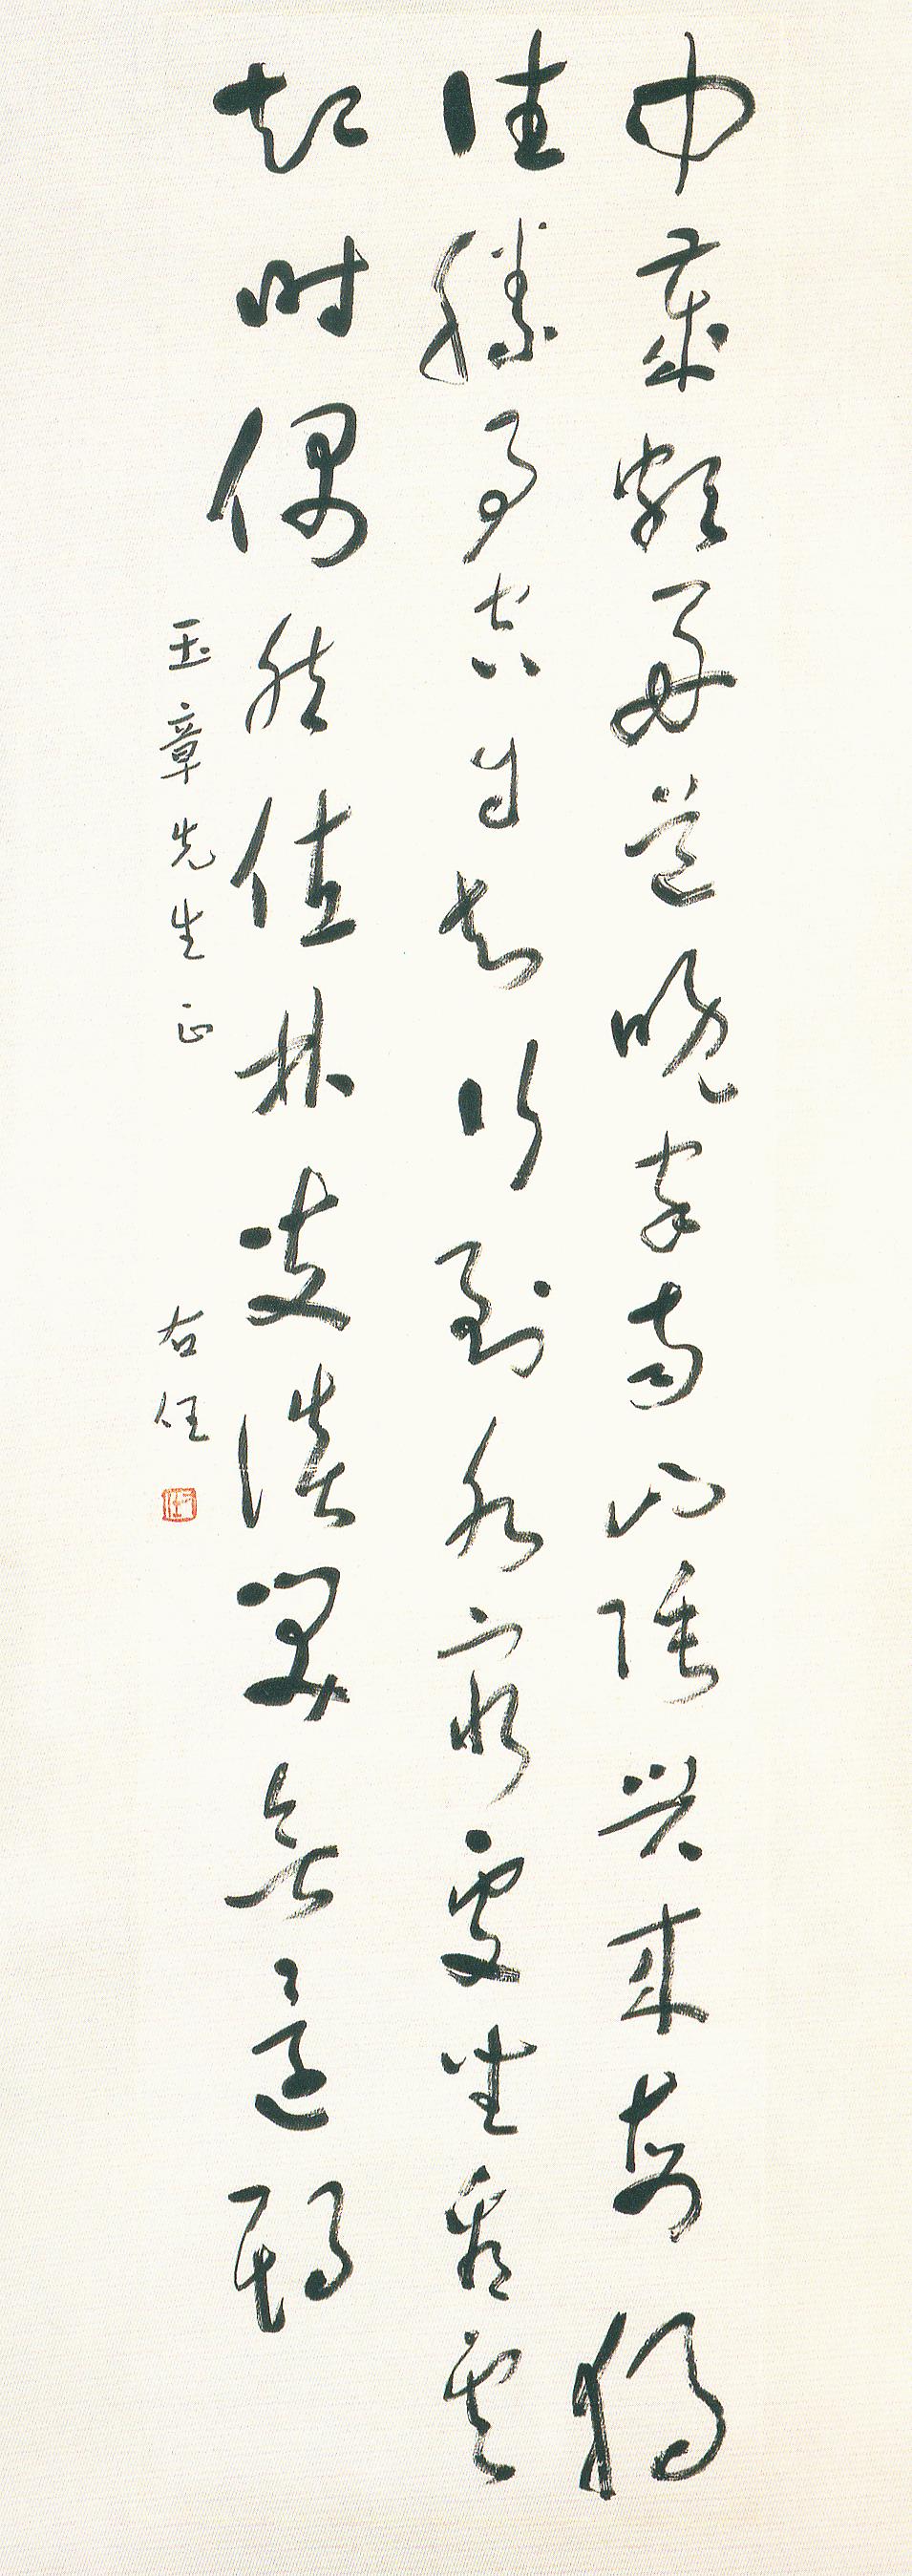 中歲頗好道晚家南山陲興來每獨
往勝事空自知行到水窮處坐看雲
起時偶然值林叟談笑無還期
玉章先生正 右任